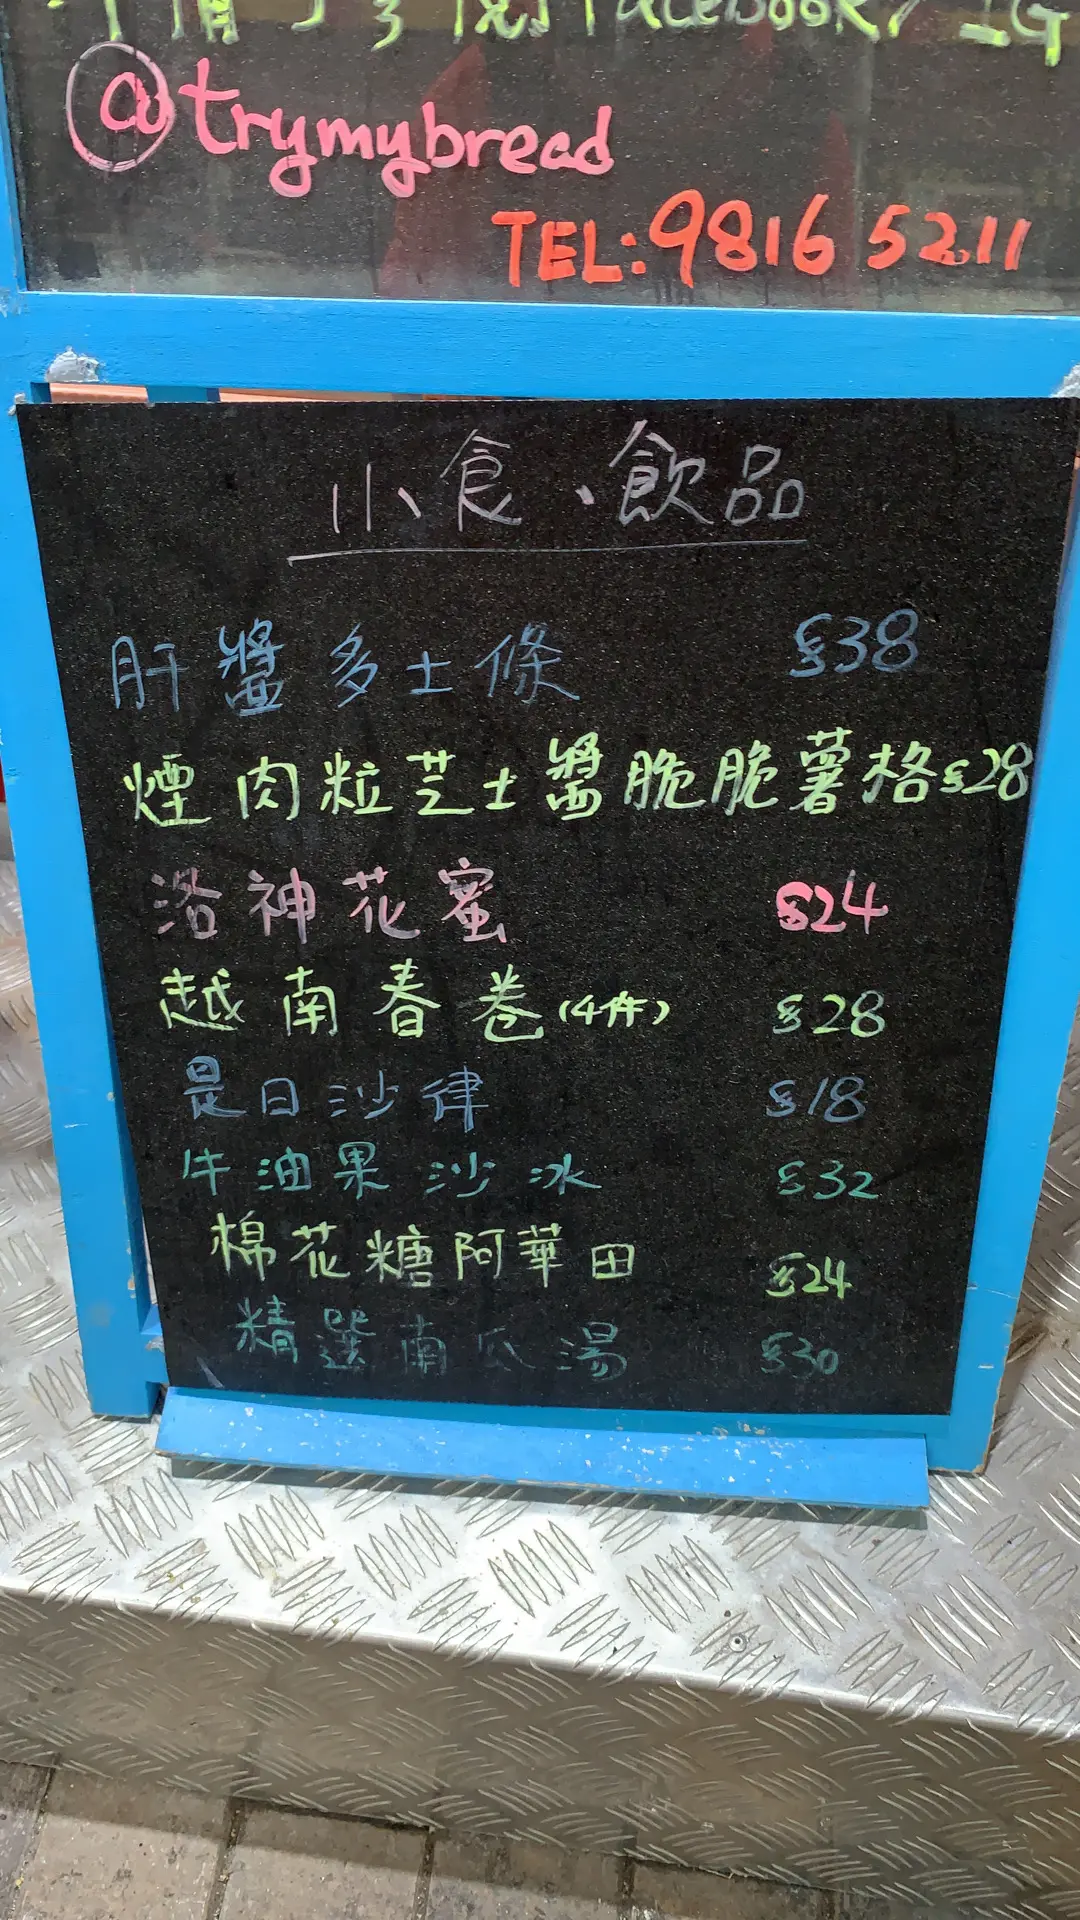 Facebook / IG
@trymybread
TEL: 9816 5211
小食、飲品
肝醬多士條 $38
煙肉粒芝士醬脆脆薯格 $28
洛神花蜜 $24
越南春卷(4件) $28
是日沙律 $18
牛油果沙冰 $32
棉花糖阿華田 $24
精選南瓜湯 $30